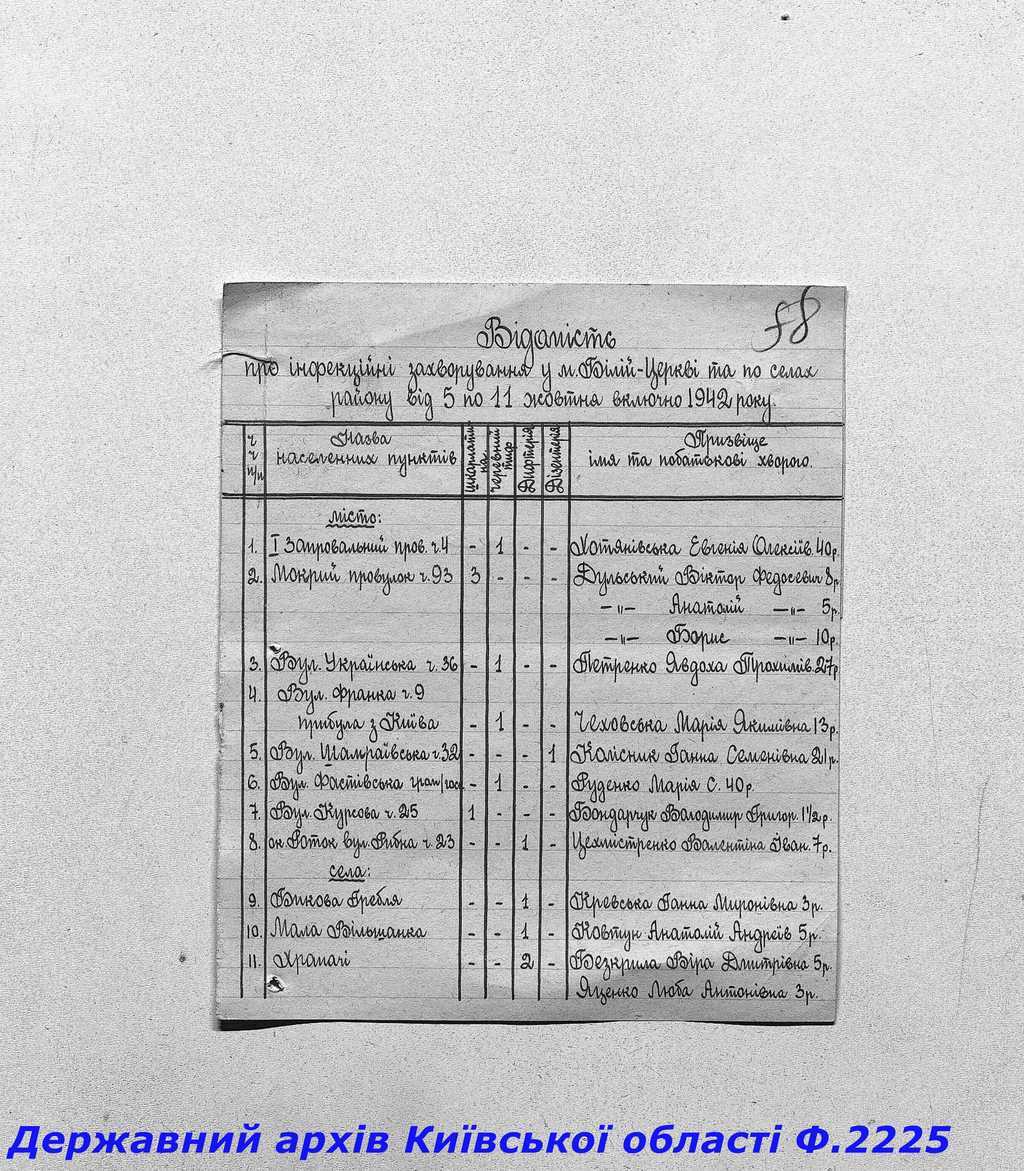 58
Відомість
про інфекційні захворування у м. Білій-Церкві та по селах
району від 5 по 11 жовтня включно 1942 року.
ч ч п/п | Назва населенних пунктів | Шкарлатина | Черевний тиф | Дифтерія | Дізентерія | Призвіще імя та побатькові хворого.
місто:
1. I Запровальний пров. ч. 4 - 1 - - Хотянівська Евгенія Олексіїв. 40 р.
2. Мокрий провулок ч. 93 3 - - - Дульський Віктор Федосевич 8 р.
—"— Анатолій —"— 5 р.
—"— Борис —"— 10 р.
3. Вул. Українська ч. 36 - 1 - - Петренко Явдоха Трохимів. 27 р
4. Вул. Франка ч. 9
прибула з Київа - 1 - - Чеховська Марія Якимівна 13 р.
5. Вул. Шамраївська ч. 32 - - - 1 Колісник Ганна Семенівна 21 р.
6. Вул. Фастівська - 1 - - Руденко Марія С. 40 р.
7. Вул. Курсова ч. 25 1 - - - Бондарчук Володимир Григор. 1 1/2 р.
8. ок Роток вул. Рибна ч. 23 - - 1 - Цехмистренко Валентіна Іван. 7 р.
села:
9. Бикова Гребля - - 1 - Кревська Ганна Миронівна 3 р.
10. Мала Вільшанка - - 1 - Ковтун Анатолій Андреїв 5 р.
11. Храпачі - - 2 - Безкрила Віра Дмитрівна 5 р.
Яценко Люба Антонівна 3 р.
Державний архів Київської області Ф.2225